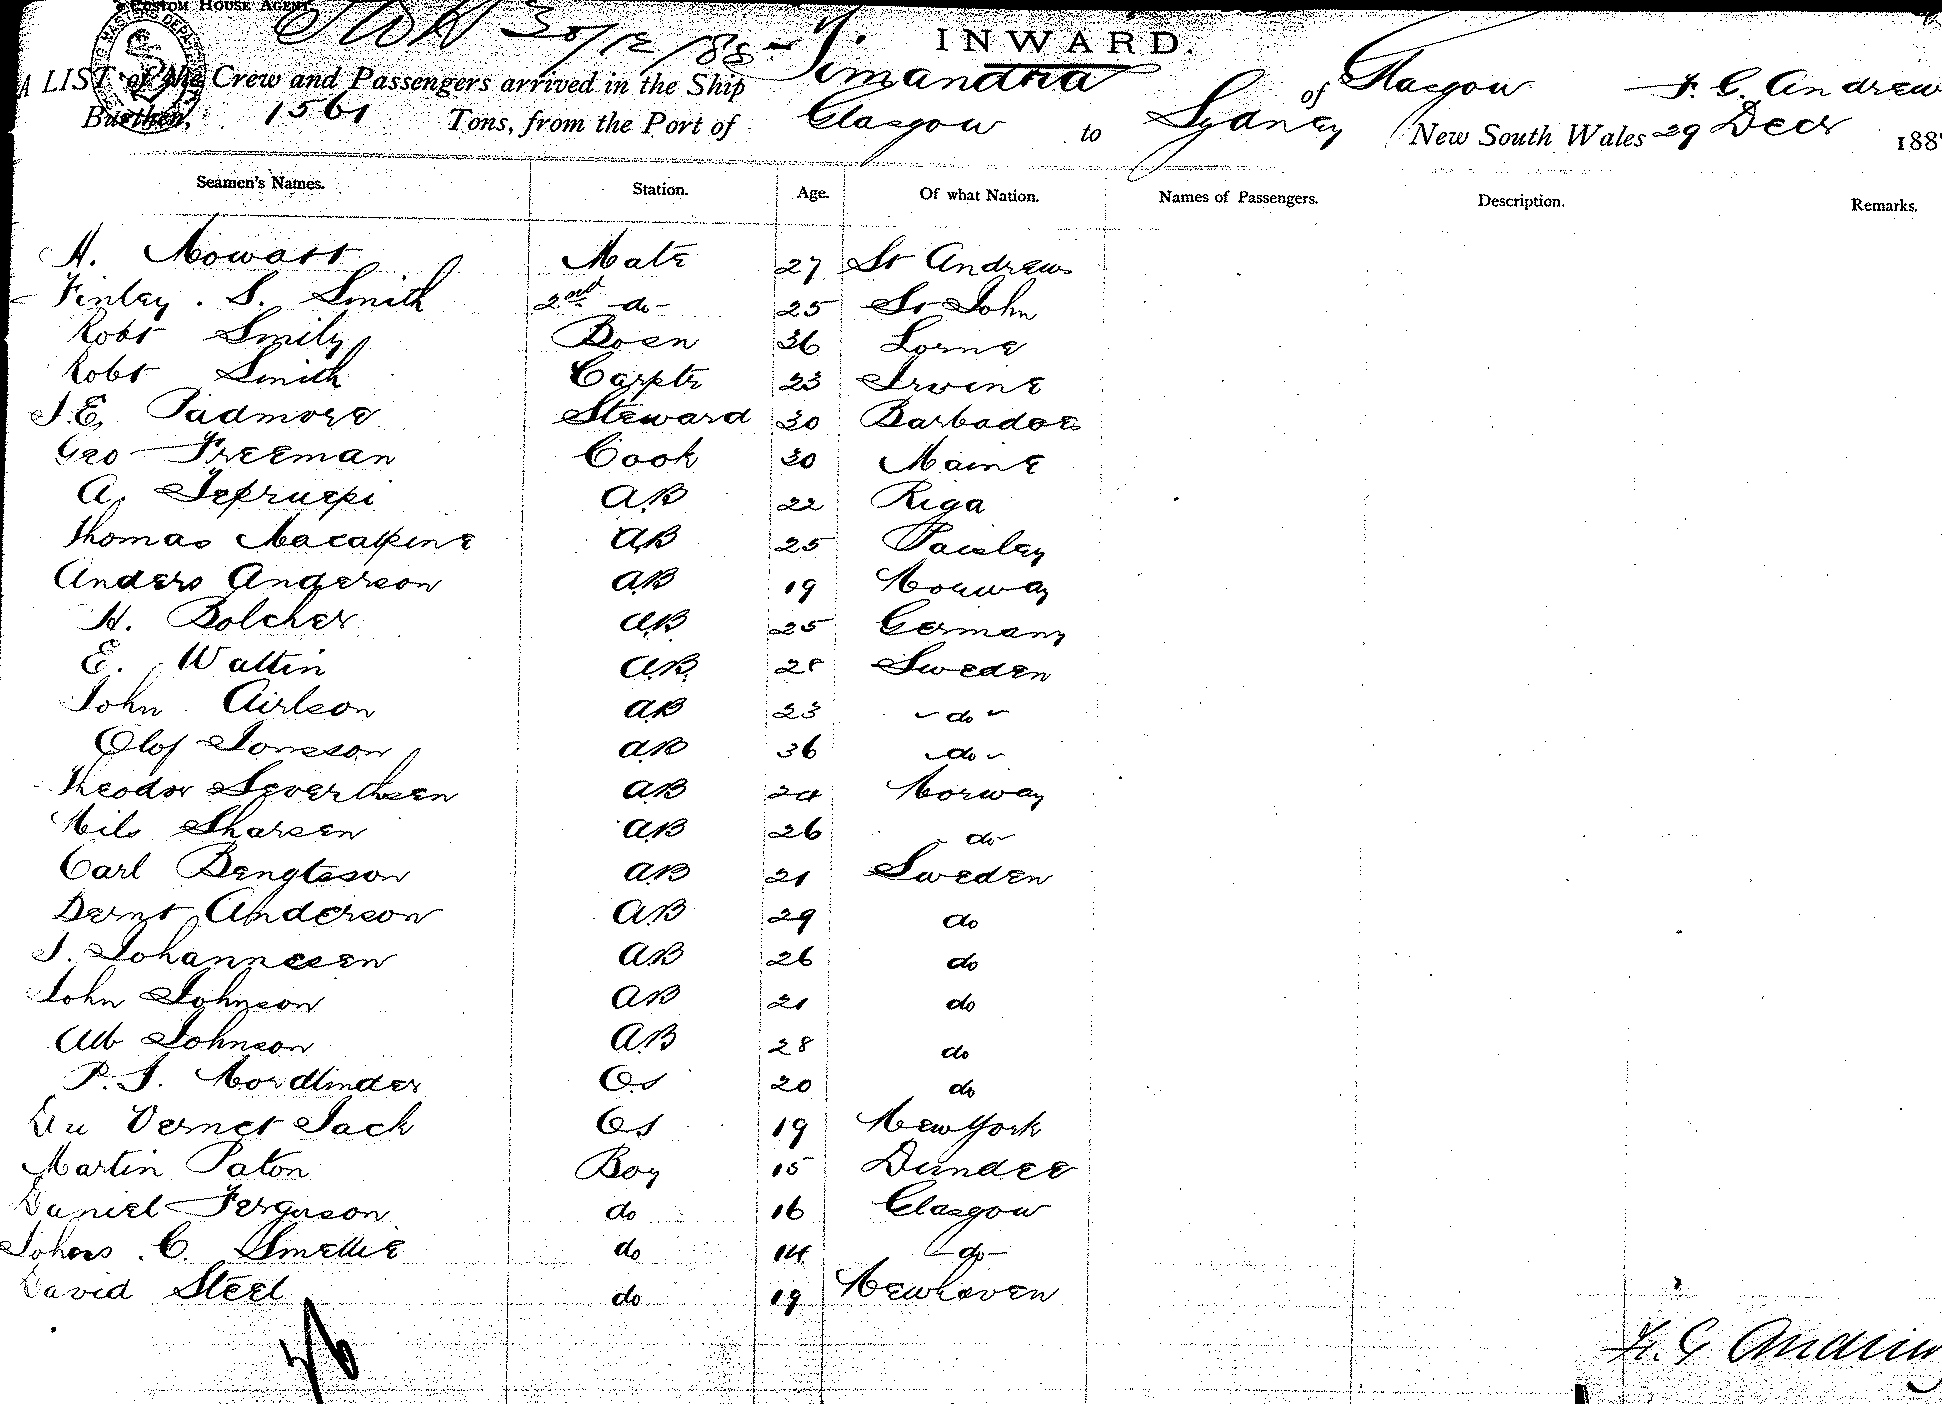 CUSTOM HOUSE AGENT.
30/12/88 INWARD.
A LIST of the Crew and Passengers arrived in the Ship Timandra of Glasgow F. C. Andrew
Burthen, 1561 Tons, from the Port of Glasgow to Sydney New South Wales 29 Decr 188
Seamen's Names. Station. Age. Of what Nation. Names of Passengers. Description. Remarks.
H. Mowatt Mate 27 St Andrews
Finley . S. Smith 2nd -do- 25 St John
Robt Smily Bosn 36 Lorne
Robt Smith Carptr 23 Irvine
J. E. Padmore Steward 30 Barbadoes
Geo Freeman Cook 30 Maine
A. AB 22 Riga
Thomas Macalpine AB 25 Paisley
Anders Anderson AB 19 Norway
H. Bolcher AB 25 Germany
E. Wallin AB 28 Sweden
John Airlson AB 23 -do-
Olof Jonsson AB 36 -do-
Theodor Severthsen AB 24 Norway
Nils Sharsen AB 26 do
Carl Bengtsson AB 21 Sweden
Bernt Anderson AB 29 do
J. Johannesen AB 26 do
John Johnson AB 21 do
Alb Johnson AB 28 do
P. J. Nordlinder OS 20 do
Du Vernet Jack OS 19 New York
Martin Paton Boy 15 Dundee
Daniel Ferguson do 16 Glasgow
C. Smellie do 14 -do-
David Steel do 19 Newhaven